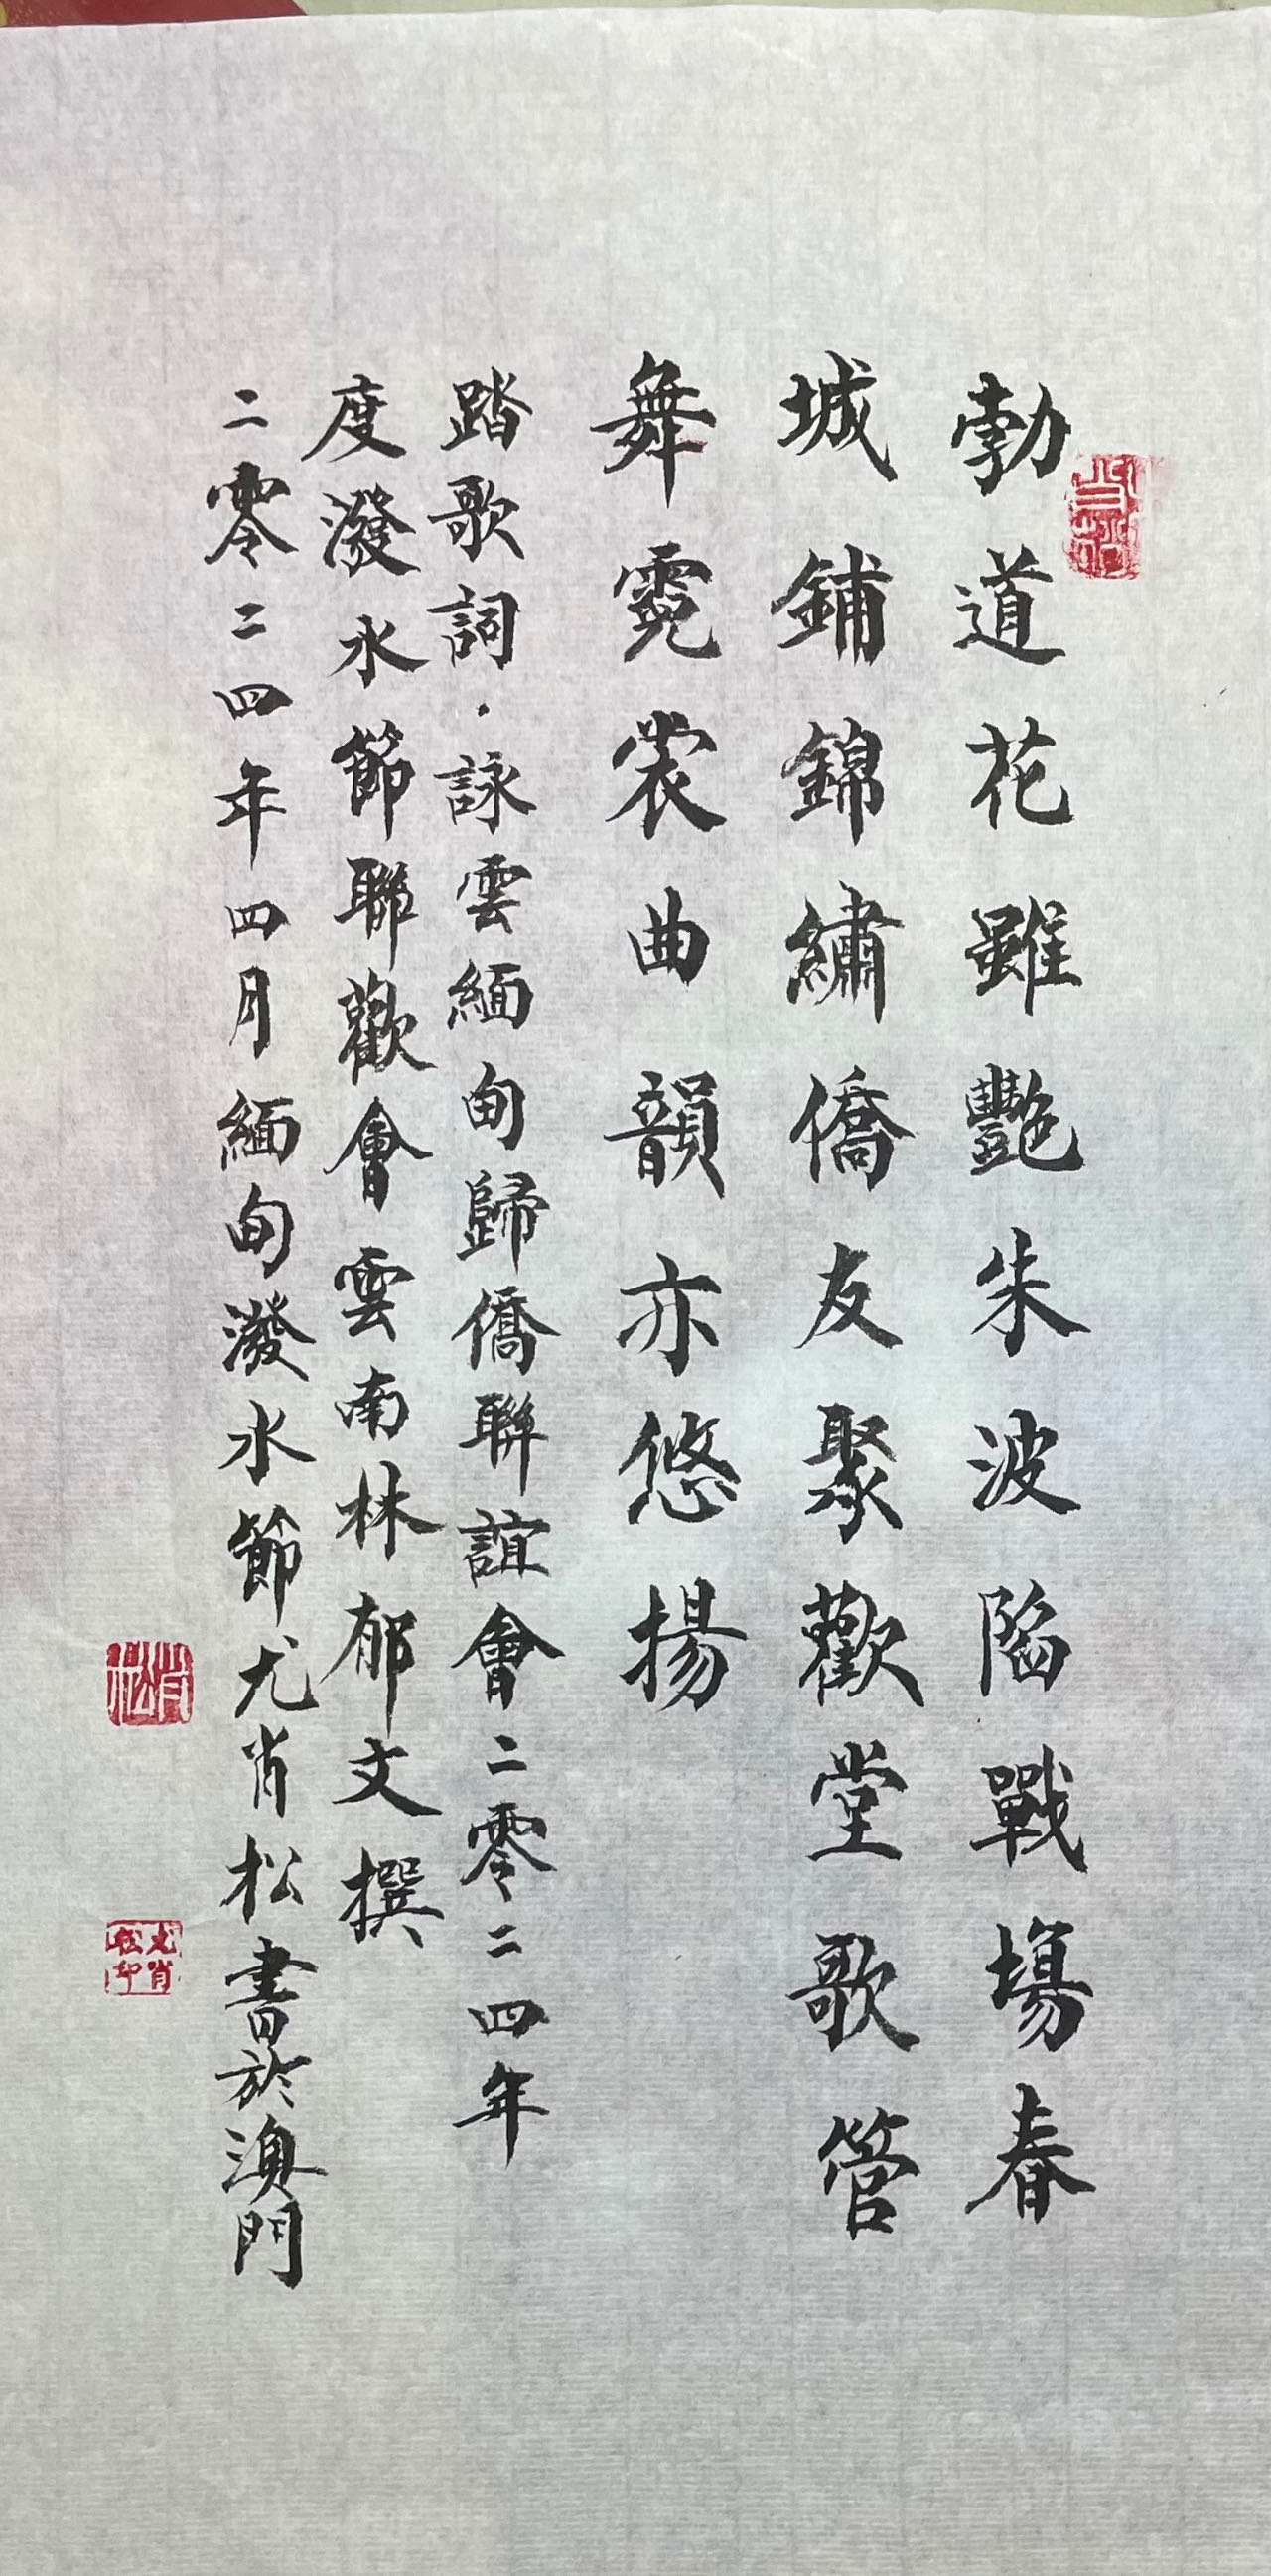 勃道花雖艷朱波陷戰場春
城鋪錦繡僑友聚歡堂歌管
舞霓裳曲韻亦悠揚
踏歌詞·詠雲緬甸歸僑聯誼會二零二四年
度潑水節聯歡會雲南林郁文撰
二零二四年四月緬甸潑水節尤肖松書於澳門
肖松
肖松
尤肖松印